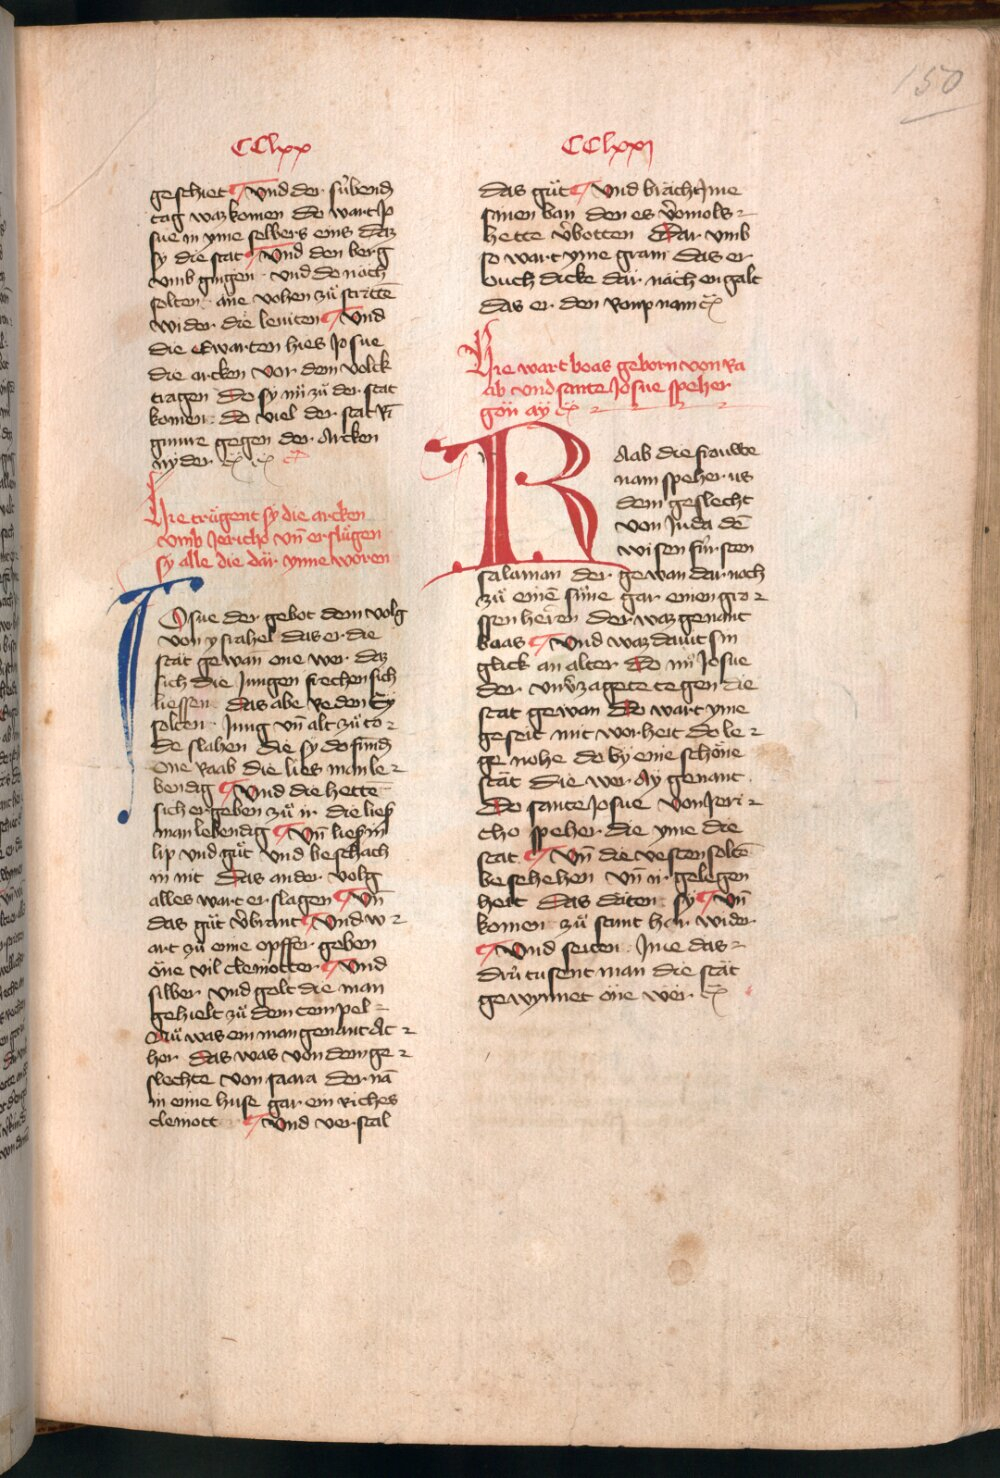 150
CClxx
geschiet Und der sübend
tag waz komen do wart Jo
sue in yme selbers eins daz
sy die stat Und den berg
vmb gingen · vnd do noch
solten · ane vohen zü stritē
wider die leuiten Und
die Ewarten hies Josue
die arcken vor dem volck
tragen Do sy nü zü der stat
komen · do viel der stat
gmure gegen der Arcken
nyder
Hie trügent sy die arcken
vmb Jericho vn̄ erslügen
sy alle die dår ynne woren
JOsue der gebot dem volg
von ysrahel das er die
stat gewan one wer · daz
sich die Jungen frechen sich
liessen · das abe reden Sy
solten · Jung vn̄ alt zü to
de slahen die sy do fund
One Raab die lies man le
bendig Und die hettē
sich ergeben zü ir die lies
man lebendig Vn̄ lies in
lip vnd güt vnd beschach
in nit Das ander volg
alles wart erslagen Vn̄
das güt v̄brant Und w
art zü eime opffer geben
öne vil cleinotter Und
silber vnd golt die man
gehielt zü dem tempel
Nü was ein man genant Ac
her das was von dem ge
slechte von saara der nā
in eime huse gar ein riches
cleinott Und verstal
CClxxj
das güt Und brächt Jme
sinen ban den es v̄omols
hette v̄botten Dar vmb
so wart yme gram das er
ouch dicke dar näch engalt
das er den roup nam
Hie wart boas geborn von Ra
ab vnd sante Josue speher
gön aÿ
RAab die frauwe
nam speher us
dem geslecht
von Juda dē
wisen fürsten
salaman der gewan dar noch
zü einē süne gar einen gro
ssen herren der waz genant
boas Und waz dauits sin
glick an alter Do nü Josue
der vnv̄zagete tegen die
stat gewan do wart yme
geseit mit worheit do le
ge nohe do by eine schöne
stat die wer Aÿ genant
Do sante Josue von Jeri
cho speher die yme die
stat Vn̄ die vesten soltē
besehehen vn̄ ir gelegen
heit Das däten sy Vn̄
komen zü samt har wider
Und seiten Jme das
drü tusent man die stat
gewynnet öne wer